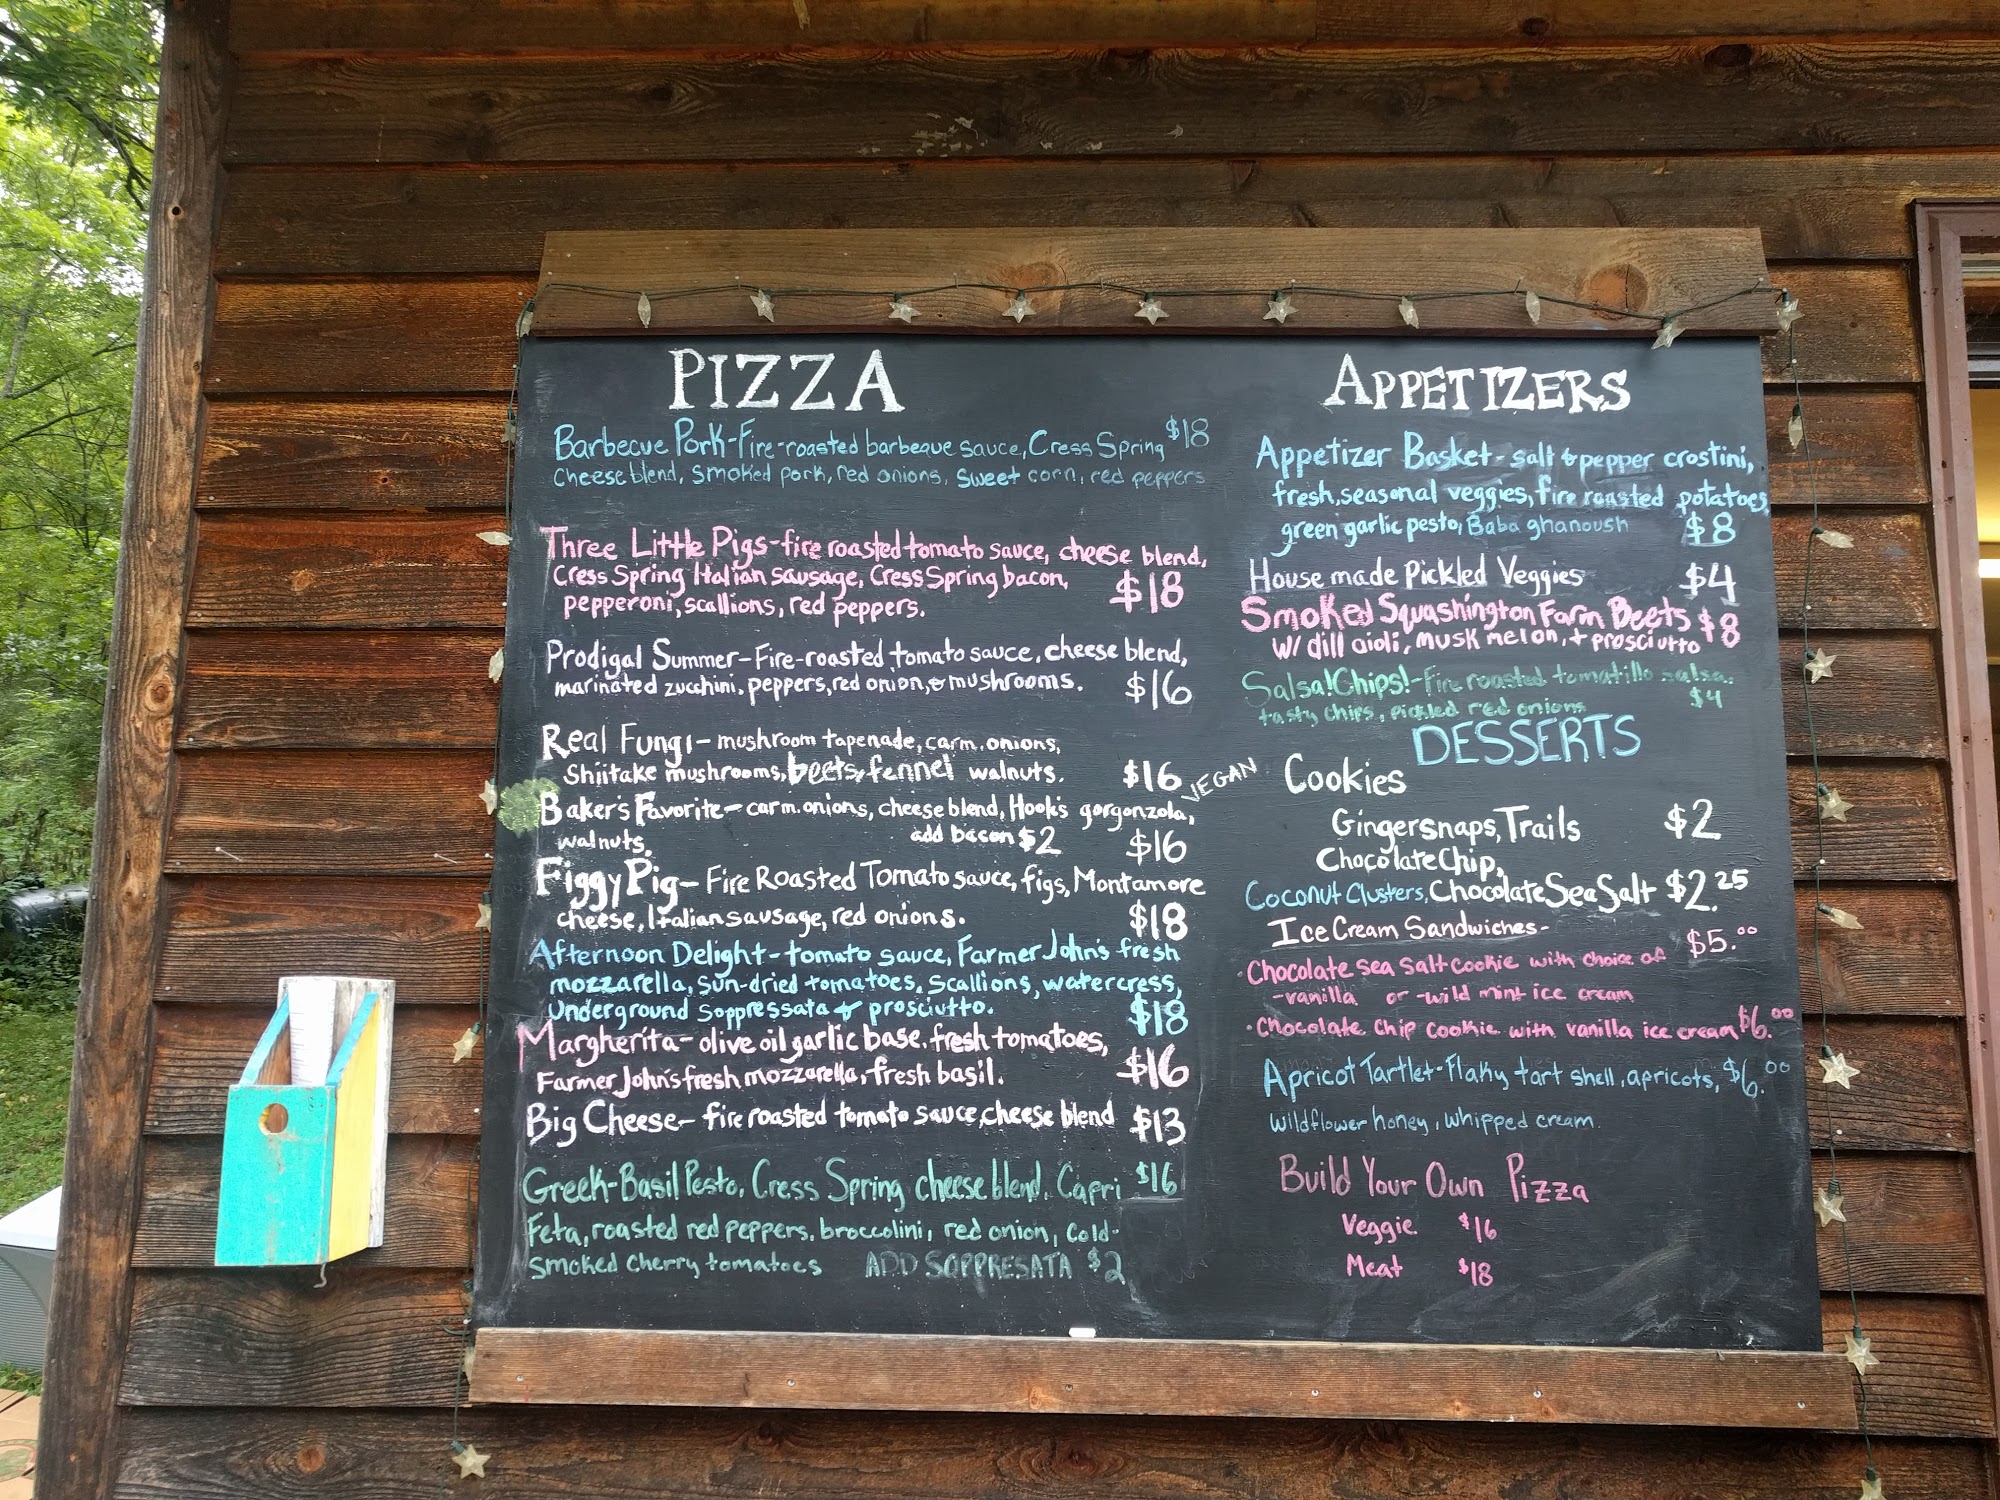 PIZZA
Barbecue Pork-Fire-roasted barbeque sauce, Cress Spring $18
Cheese blend, Smoked pork, red onions, sweet corn, red peppers
Three Little Pigs-fire roasted tomato sauce, cheese blend,
Cress Spring Italian sausage, Cress Spring bacon,
pepperoni, scallions, red peppers. $18
Prodigal Summer-Fire-roasted tomato sauce, cheese blend,
marinated zucchini, peppers, red onion, & mushrooms. $16
Real Fungi-mushroom tapenade, carm. onions,
Shiitake mushrooms, beets, fennel walnuts. $16 VEGAN
Baker's Favorite-carm. onions, cheese blend, Hook's gorgonzola,
walnuts. add bacon $2 $16
Figgy Pig-Fire Roasted Tomato sauce, figs, Montamore
cheese, Italian sausage, red onions. $18
Afternoon Delight-tomato sauce, Farmer John's fresh
mozzarella, sun-dried tomatoes, scallions, watercress,
Underground Soppressata & prosciutto. $18
Margherita-olive oil garlic base. fresh tomatoes,
Farmer John's fresh mozzarella, fresh basil. $16
Big Cheese-fire roasted tomato sauce, cheese blend $13
Greek-Basil Pesto, Cress Spring cheese blend, Capri $16
Feta, roasted red peppers, broccolini, red onion, Cold-
Smoked Cherry tomatoes ADD SOPPRESATA $2
APPETIZERS
Appetizer Basket-salt & pepper crostini,
fresh, seasonal veggies, fire roasted potatoes,
green garlic pesto, Baba ghanoush $8
House made Pickled Veggies $4
Smoked Squashington Farm Beets $8
W/ dill aioli, musk melon, + prosciutto
Salsa! Chips!-Fire roasted tomatillo salsa.
tasty chips, pickled red onions $4
DESSERTS
Cookies
Gingersnaps, Trails $2
Chocolate Chip,
Coconut Clusters, Chocolate Sea Salt $2.25
Ice Cream Sandwiches-
•Chocolate sea salt cookie with choice of $5.00
-vanilla or -wild mint ice cream
•Chocolate chip cookie with vanilla ice cream $6.00
Apricot Tartlet-Flaky tart shell, apricots, $6.00
wildflower honey, whipped cream.
Build Your Own Pizza
Veggie $16
Meat $18